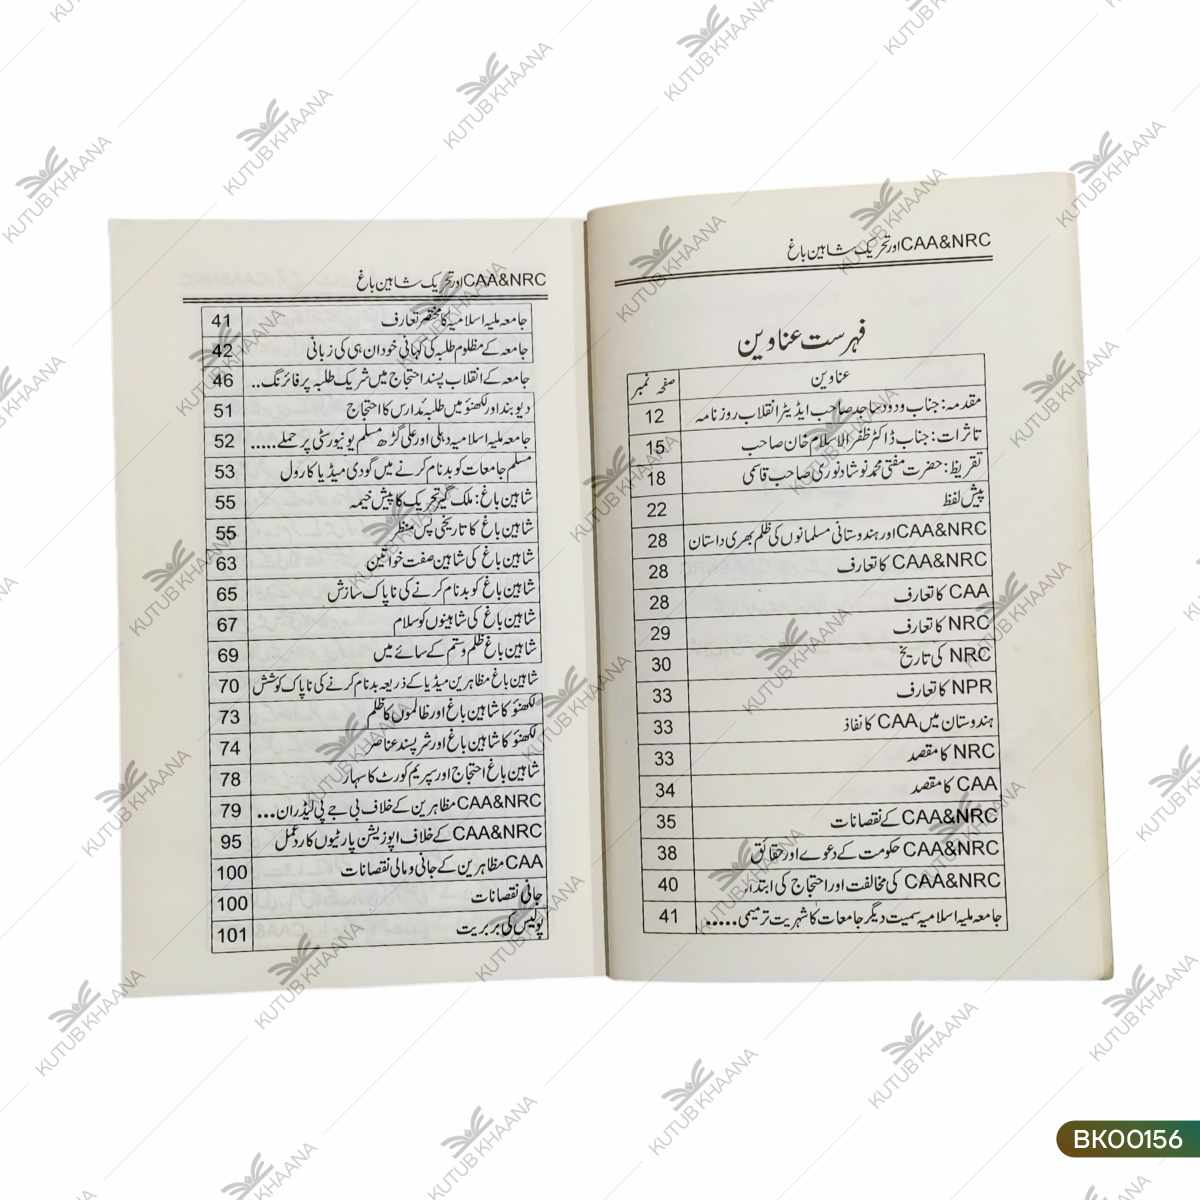 CAA&NRC اور تحریک شاہین باغ
فہرست عناوین
عناوین صفحہ نمبر
مقدمہ: جناب ودود ساجد صاحب ایڈیٹر انقلاب روزنامہ 12
تاثرات: جناب ڈاکٹر ظفر الاسلام خان صاحب 15
تقریظ: حضرت مفتی محمد نوشاد نوری صاحب قاسمی 18
پیش لفظ 22
CAA&NRC اور ہندوستانی مسلمانوں کی ظلم بھری داستان 28
CAA&NRC کا تعارف 28
CAA کا تعارف 28
NRC کا تعارف 29
NRC کی تاریخ 30
NPR کا تعارف 33
ہندوستان میں CAA کا نفاذ 33
NRC کا مقصد 33
CAA کا مقصد 34
CAA&NRC کے نقصانات 35
CAA&NRC حکومت کے دعوے اور حقائق 38
CAA&NRC کی مخالفت اور احتجاج کی ابتداء 40
جامعہ ملیہ اسلامیہ سمیت دیگر جامعات کا شہریت ترمیمی..... 41
CAA&NRC اور تحریک شاہین باغ
جامعہ ملیہ اسلامیہ کا مختصر تعارف 41
جامعہ کے مظلوم طلبہ کی کہانی خود ان ہی کی زبانی 42
جامعہ کے انقلاب پسند احتجاج میں شریک طلبہ پر فائرنگ.. 46
دیوبند اور لکھنؤ میں طلبہ مدارس کا احتجاج 51
جامعہ ملیہ اسلامیہ دہلی اور علی گڑھ مسلم یونیورسٹی پر حملے..... 52
مسلم جامعات کو بدنام کرنے میں گودی میڈیا کا رول 53
شاہین باغ: ملک گیر تحریک کا پیش خیمہ 55
شاہین باغ کا تاریخی پس منظر 55
شاہین باغ کی شاہین صفت خواتین 63
شاہین باغ کو بدنام کرنے کی ناپاک سازش 65
شاہین باغ کی شاہینوں کو سلام 67
شاہین باغ ظلم و ستم کے سائے میں 69
شاہین باغ مظاہرین میڈیا کے ذریعہ بدنام کرنے کی ناپاک کوشش 70
لکھنؤ کا شاہین باغ اور ظالموں کا ظلم 73
لکھنؤ کا شاہین باغ اور شرپسند عناصر 74
شاہین باغ احتجاج اور سپریم کورٹ کا سہارا 78
CAA&NRC مظاہرین کے خلاف بی جے پی لیڈران... 79
CAA&NRC کے خلاف اپوزیشن پارٹیوں کا ردعمل 95
CAA مظاہرین کے جانی و مالی نقصانات 100
جانی نقصانات 100
پولیس کی بربریت 101
KUTUB KHAANA
BK00156